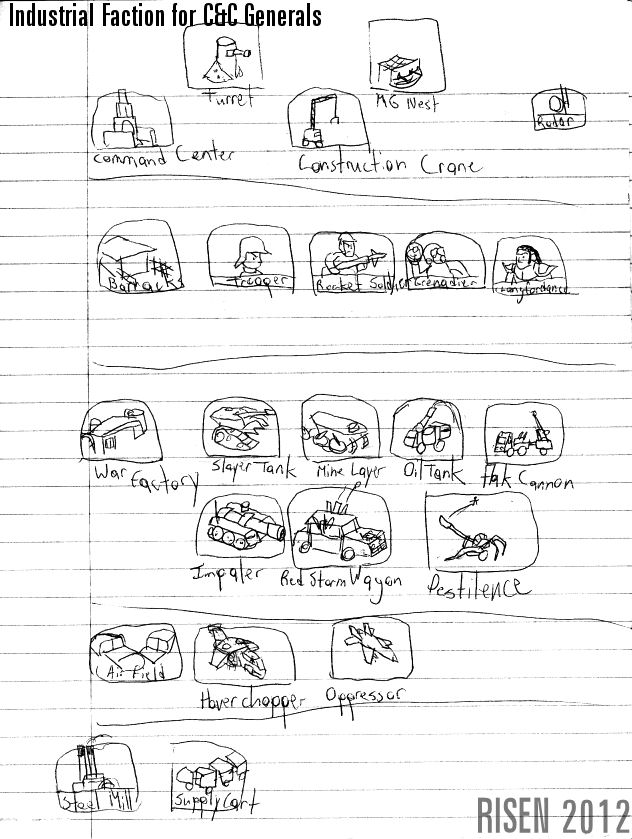 Industrial Faction for C&C Generals
Turret
MG Nest
Radar
Command Center
Construction Crane
Barracks
Trooper
Rocket Soldier
Grenadier
War Factory
Slayer Tank
Mine Layer
Oil Tank
Flak Cannon
Impaler
Red Storm Wagon
Pestilence
Air Field
Hover chopper
Oppressor
Steel Mill
Supply Cart
RISEN 2012